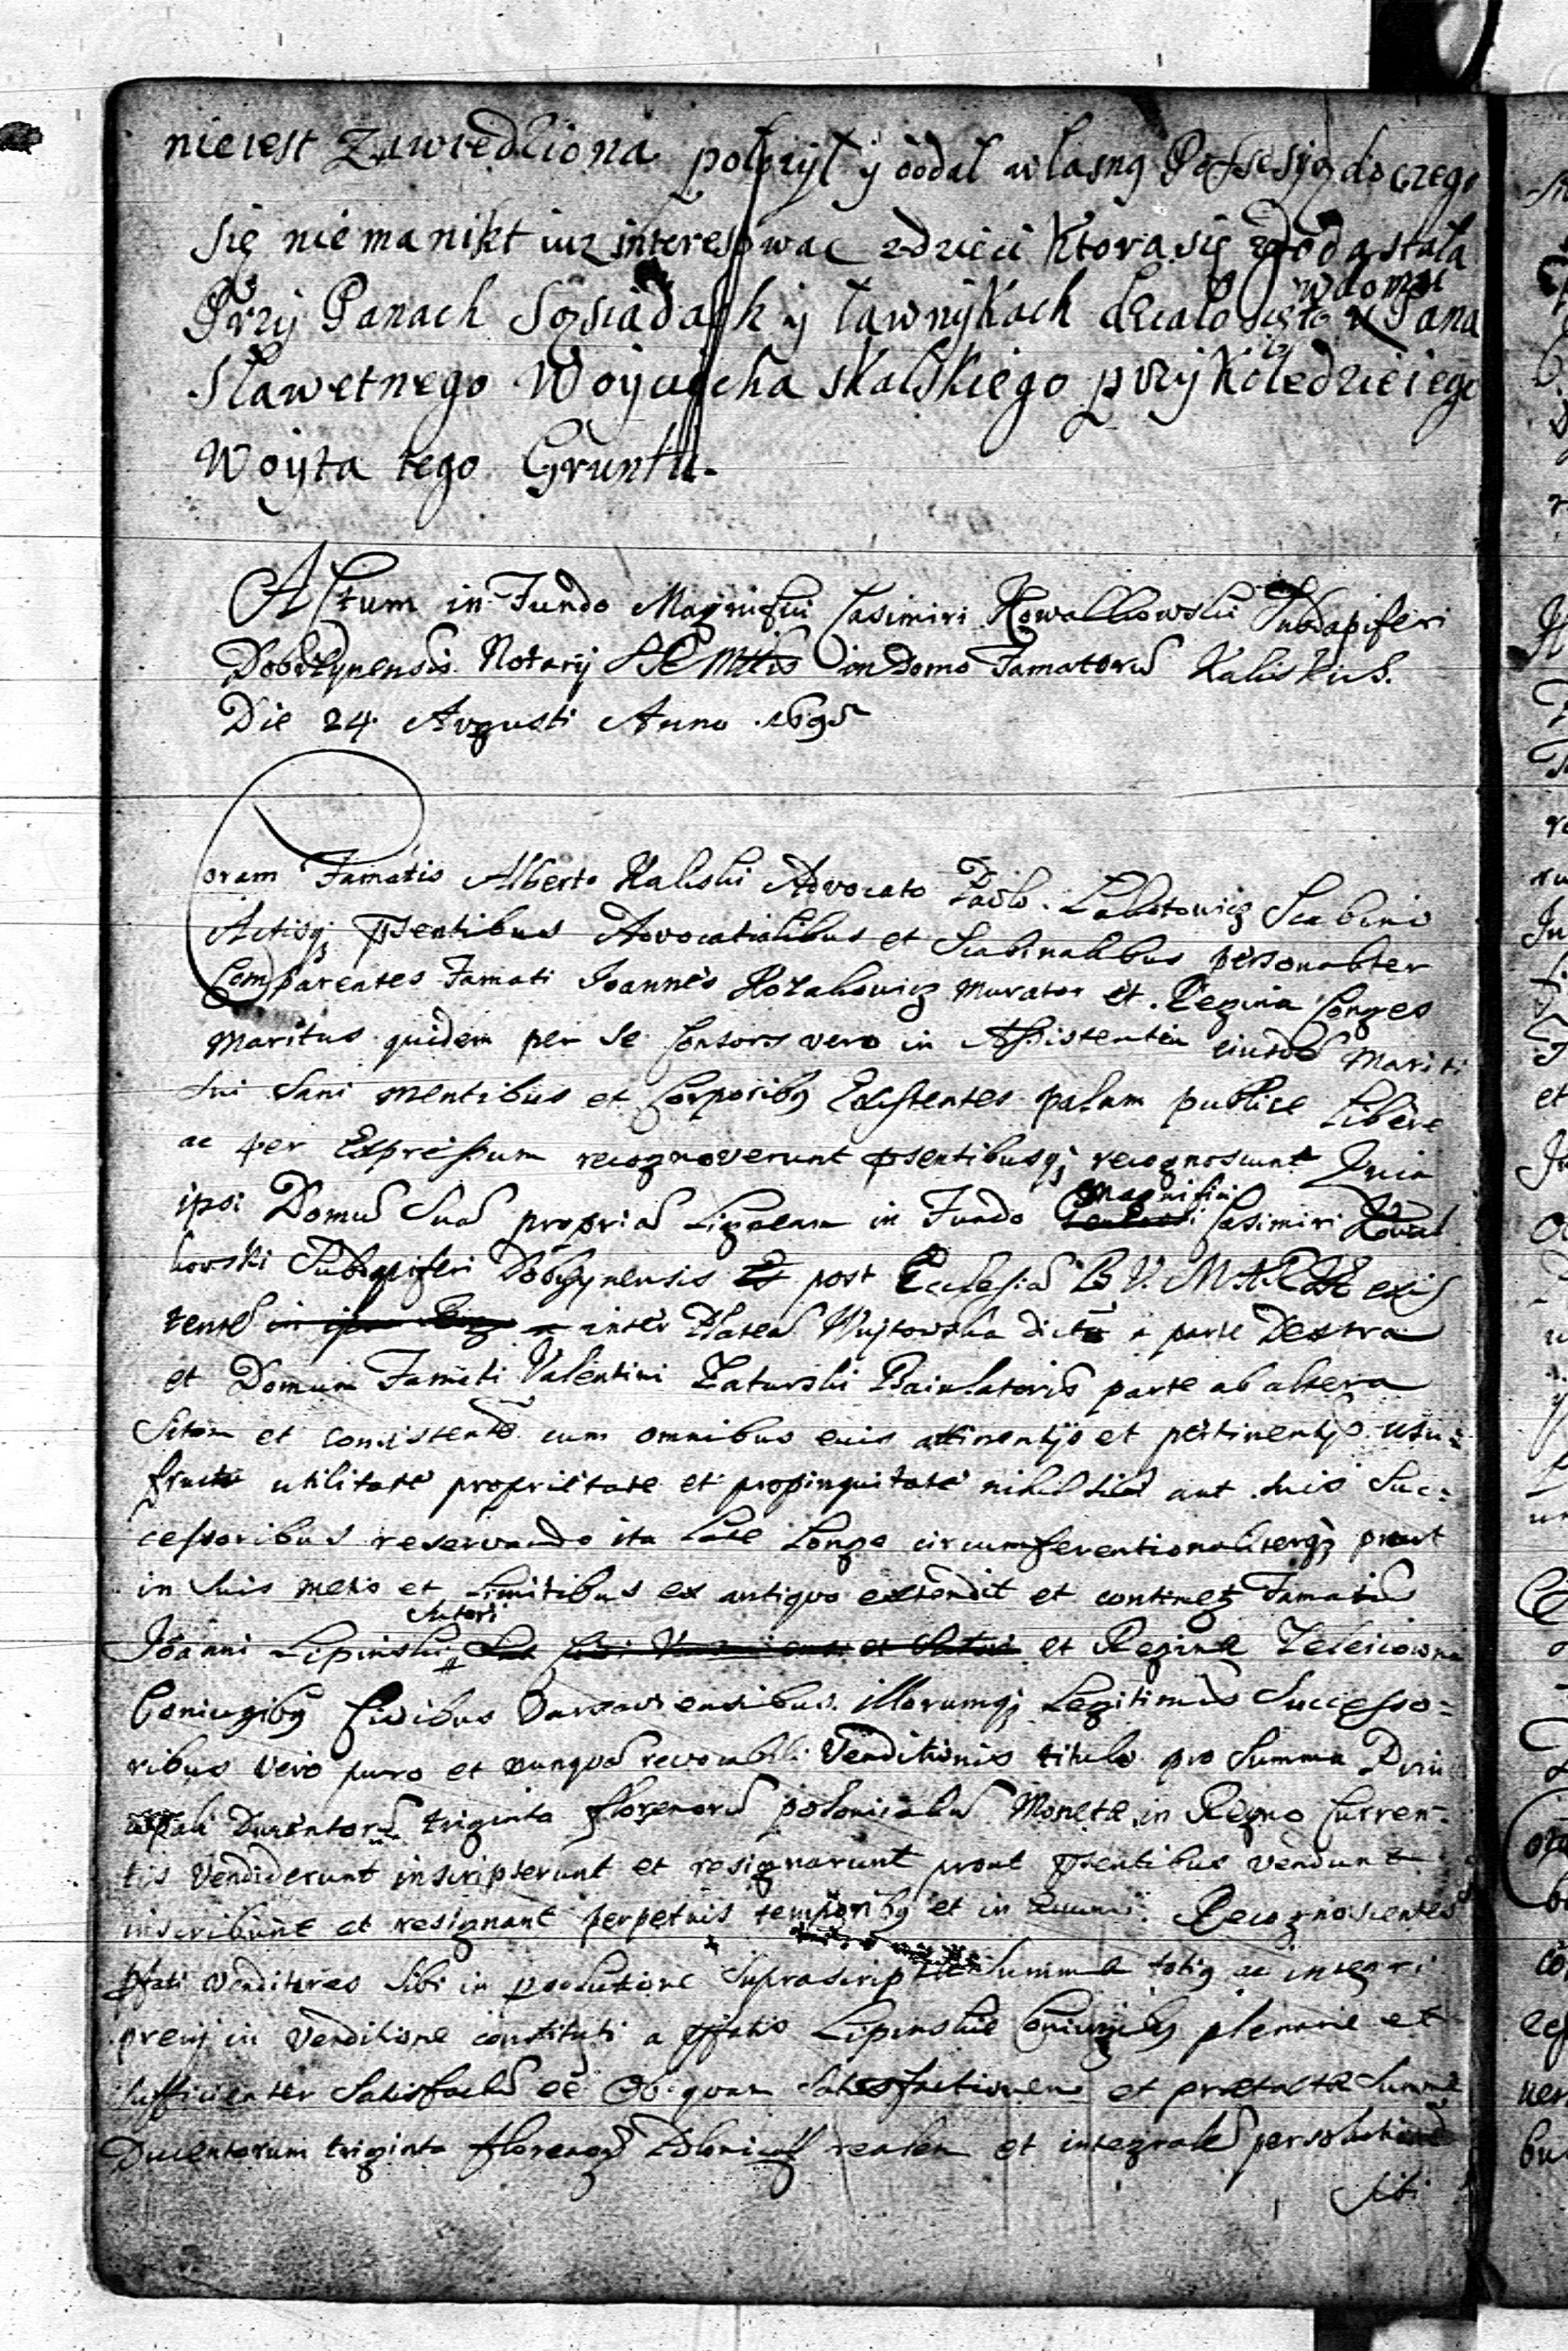 nie iest zawiedziona położył y oddał własną Possesyą do czego
się niema nikt iuz interesowac zdzieci ktora się zgoda stała
Przÿ Panach Sąsiadach y ławnÿkach działo się to w domu Pana
Sławetnego Woÿciecha skalskiego przÿ Kolędzie iego
Woÿta tego Gruntu.
Actum in Fundo Magnifici Casimiri Kowalkowski Subdapiferi
Dobrzynensis Notarij in Domo Famatorū Kaliskiis.
Die 24 Augusti Anno 1695
Coram Famatis Alberto Kaliski Advocato Paulo Scabino
Actisq; pñtibus Advocatialibus et Scabinalibus personaliter
Comparentes Famati Joannes Kozakowicz Murator et Regina Conges
Maritus quidem per se Consors vero in Assistentia eiusdē Mariti
sui Sani mentibus et Corporibq Existentes palam publice Libere
ac per Expressum recognoverunt psentibusq; recognoscunt Quia
ipsi Domū Suā propriā Ligneam in Fundo Magnifici Casimiri Kowal
kowski Subdapiferi Dobrzynensis post Ecclesiā B. V. MARIÆ exis
tentē inter Plateā Wujtowska dictā a parte Dextra
et Domum Famati Valentini Zaturski Baiulatoris parte ab altera
Sitam et consistentē cum omnibus eius attinentijs et pertinentijs usu-
fructu utilitate proprietate et propinquitate nihil sibi aut suis Suc-
cessoribus reservando ita Late Longe circumferentionaliterq; prout
in suis metis et Limitibus ex antiquo extendit et continetz Famatis
Joanni Lipinski Sutori et Reginæ Zeleicowna
Coniugibq Civibus Varsaviensibus illorumq; Legitimis Successo-
ribus vero puro et nunquā revocabili Venditionis titulo pro Summa Prin
cipali Ducentorū triginta florenorū polonicaliū Monetæ in Regno Curren-
tis Vendiderunt inscripserunt et resignarunt prout psentibus vendunt
inscribunt et resignant perpetuis temporibq et in ævum. Recognoscentes
pfati venditores sibi in psolutione suprascriptæ Summæ totiq ac integri
pretij in Venditione constituti a pfatis Lipinskie Coniugibq plenarie et
sufficienter Satisfactū eē Ob quam Satisfactionem et prætactæ Summæ
Ducentorum triginta florenorū Polonicaliū realem et integralē persolutionē
sibi